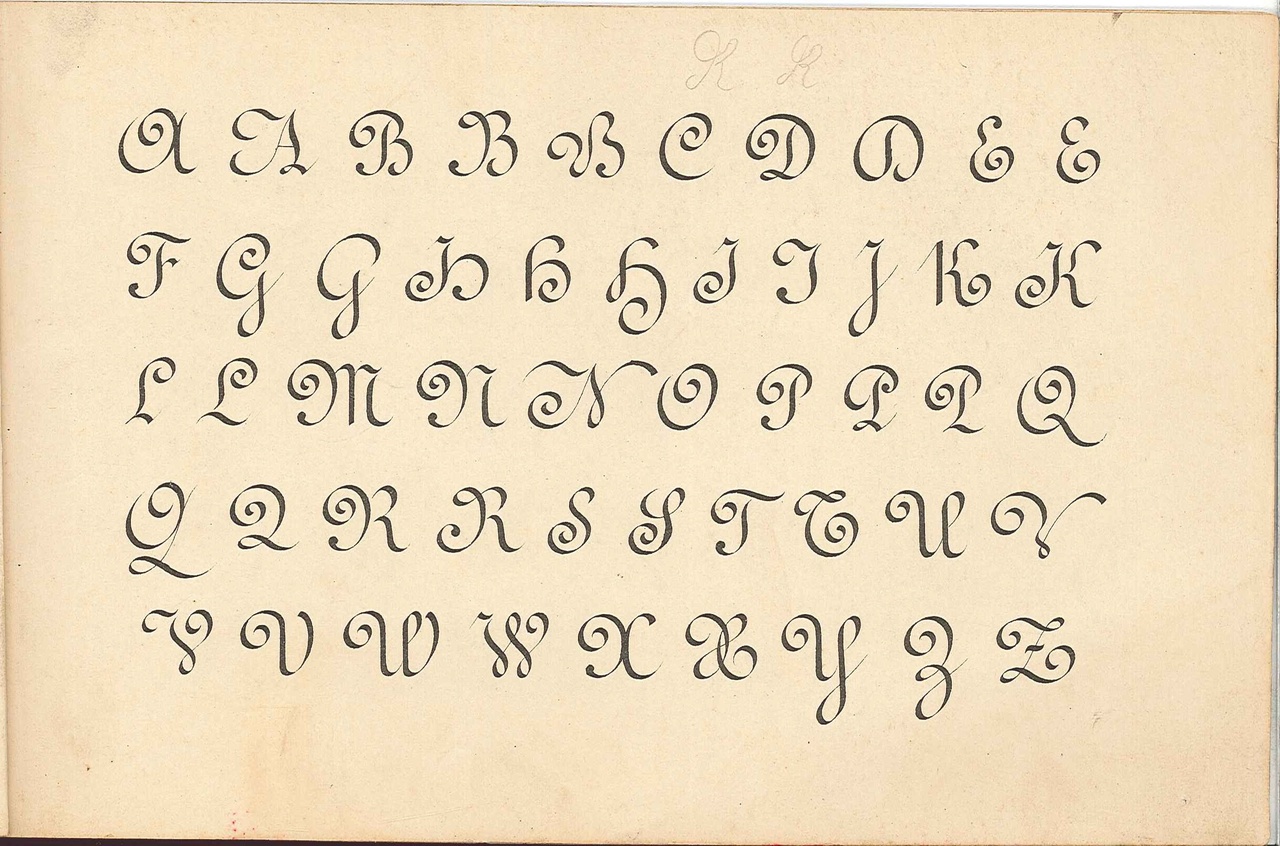 K K
A A B B B C D D E E
F G G H H H I I J K K
L L M N N O P P P Q
Q Q R R S S T T U V
V V W W X X Y Z Z